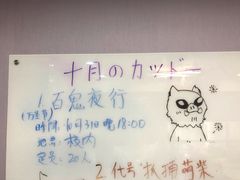 十月のカツドー
1.百鬼夜行
(万圣节)
时间:10月31日 晚18:00
地点:校内
定员:20人
2.代号 抓捕萌柴